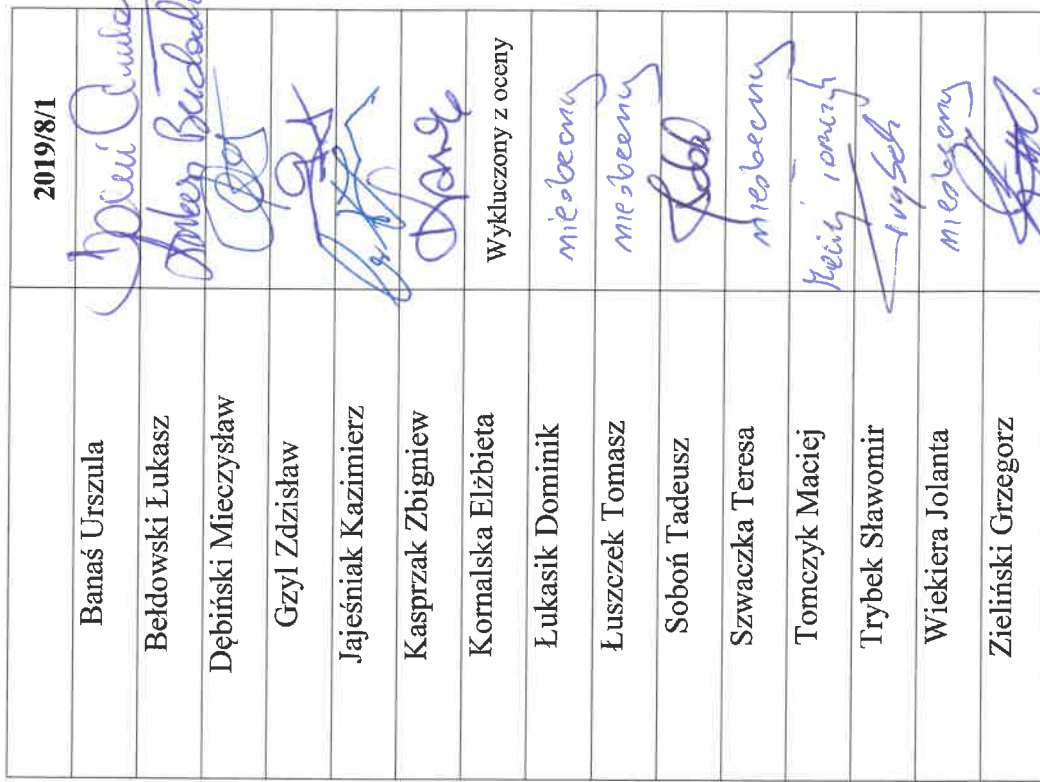 2019/8/1
Banaś Urszula
Bełdowski Łukasz
Dębiński Mieczysław
Gzyl Zdzisław
Jajeśniak Kazimierz
Kasprzak Zbigniew
Kornalska Elżbieta Wykluczony z oceny
Łukasik Dominik nieobecny
Łuszczek Tomasz nieobecny
Soboń Tadeusz Soboń
Szwaczka Teresa nieobecny
Tomczyk Maciej Maciej Tomczyk
Trybek Sławomir
Wiekiera Jolanta nieobecny
Zieliński Grzegorz